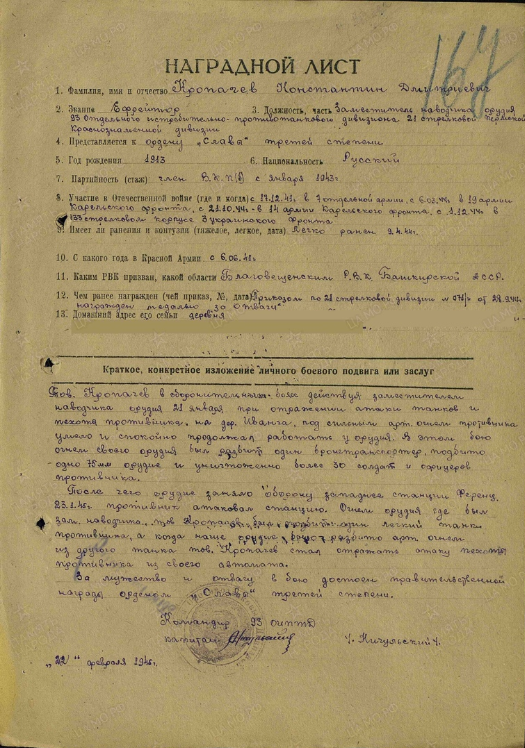 167
НАГРАДНОЙ ЛИСТ
1. Фамилия, имя и отчество Кропачев Константин Дмитриевич
2. Звание Ефрейтор 3. Должность, часть Заместитель наводчика орудия
93 отдельного истребительно-противотанкового дивизиона 21 стрелковой Пермской
Краснознаменной дивизии
4. Представляется к ордену „Слава" третей степени
5. Год рождения 1913 6. Национальность Русский
7. Партийность (стаж) член В.К.П(б) с января 1943г.
8. Участие в Отечественной войне (где и когда) с 17.12.41г. в 7 отдельной армии, с 6.03.44г. в 19 армии
Карельского фронта, с 21.10.44г. в 14 армии Карельского фронта, с 4.12.44г. в
133 стрелковом корпусе 3 украинского фронта
9. Имеет ли ранения и контузии (тяжелое, легкое, дата) Легко ранен 9.4.44г.
10. С какого года в Красной Армии с 6.06.41г
11. Каким РВК призван, какой области Благовещенским Р.В.К. Башкирской АССР.
12. Чем ранее награжден (чей приказ, №, дата) Приказом по 21 стрелковой дивизии
награжден медалью за Отвагу"
13. Домашний адрес его семьи деревня
Краткое, конкретное изложение личного боевого подвига или заслуг
Тов. Кропачев в оборонительных боях действуя заместителем
наводчика орудия 21 января при отражении атаки танков и
пехоты противника на дер. Иванча, под сильным арт. огнем противника
умело и спокойно продолжал работать у орудия. В этом бою
огнем своего орудия был разбит один бронетранспортер, подбито
одно 75мм орудие и уничтожено более 30 солдат и офицеров
противника.
После чего орудие заняло оборону западнее станции Ференц
23.1.45г. противник атаковал станцию. Огнем орудия где был
зам. наводчика тов Кропачев, был разбит один легкий танк
противника, а когда наше орудие было разбито арт. огнем
из другого танка тов. Кропачев стал отражать атаку пехоты
противника из своего автомата.
За мужество и отвагу в бою достоен правительственной
награды орденом „Славы" третей степени.
Командир 93 оиптд
капитан /. Кичульский /.
„22" февраля 1945г.